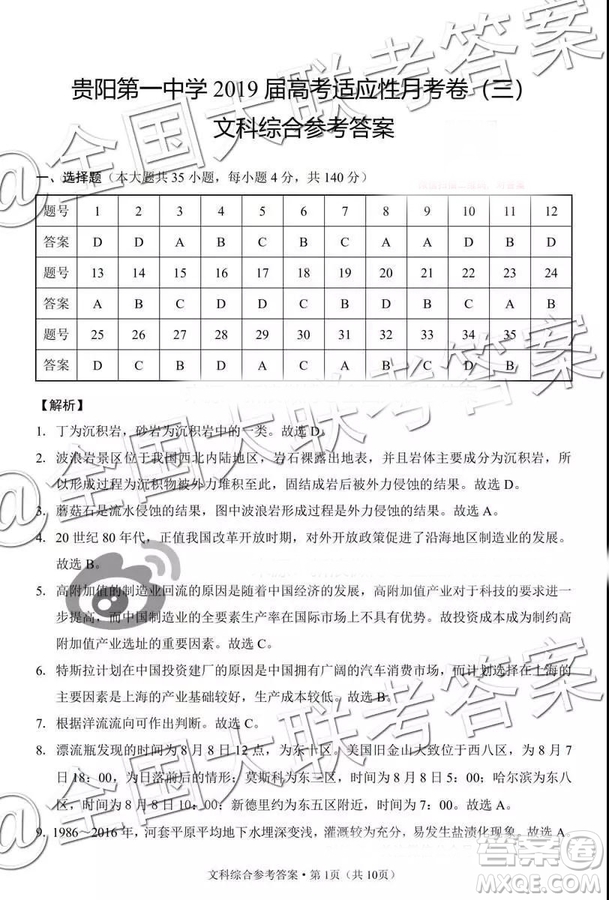 贵阳第一中学 2019 届高考适应性月考卷（三）
文科综合参考答案
一、选择题（本大题共 35 小题，每小题 4 分，共 140 分）
题号 1 2 3 4 5 6 7 8 9 10 11 12
答案 D D A B C B C A C A B D
题号 13 14 15 16 17 18 19 20 21 22 23 24
答案 A B C D D C B D B A B C
题号 25 26 27 28 29 30 31 32 33 34 35
答案 D C B D A C B A C D
【解析】
1. 丁为沉积岩，砂岩为沉积岩中的一类。故选 D。
2. 波浪岩景区位于我国西北内陆地区，岩石裸露出地表，并且岩体主要成分为沉积岩，所
以形成过程为沉积物被外力堆积至此，固结成岩后被外力侵蚀的结果。故选 D。
3. 蘑菇石是流水侵蚀的结果，图中波浪岩形成过程是外力侵蚀的结果。故选 A。
4. 20 世纪 80 年代，正值我国改革开放时期，对外开放政策促进了沿海地区制造业的发展。
故选 B。
5. 高附加值的制造业回流的原因是随着中国经济的发展，高附加值产业对于科技的要求
提高，而中国制造业的全要素生产率在国际市场上不具有优势。故投资成本成为制约高
附加值产业选址的重要因素。故选 C。
6. 特斯拉计划在中国投资建厂的原因是中国拥有广阔的汽车消费市场，而最终选择在上海的
主要因素是上海的产业基础较好，生产成本较低。故选 B。
7. 根据洋流流向可作出判断。故选 C。
8. 漂流瓶发现的时间为 8 月 8 日 12 点，为东十区。美国旧金山大致位于西八区，为 8 月 7
日 18：00，为日落前后的情形；莫斯科为东三区，时间为 8 月 8 日 5：00；哈尔滨为东八
区，时间为 8 月 8 日 10：00；新德里约为东五区时间为 8 月 8 日 7：00。故选 A。
9. 1986～2016 年，河套平原平均地下水埋深变浅，灌溉较为充分，易发生盐渍化现象。故选 A
文科综合参考答案·第 1 页（共 10 页）
@全国大联考答案